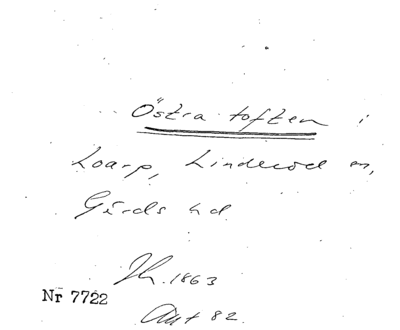 Östra toften i
Loarp, Linderöd sn,
Gärds hd
Jh. 1863
Nr 7722
Akt 82.